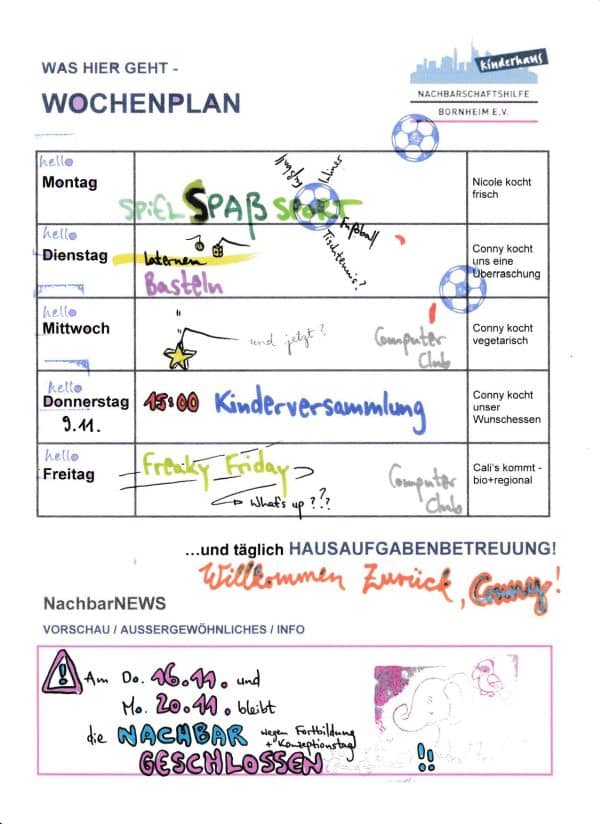 WAS HIER GEHT -
WOCHENPLAN
Kinderhaus
NACHBARSCHAFTSHILFE
BORNHEIM E.V.
hello
Montag
SPiEL SPAß SPORT
Fußball
Tischtennis?
Nicole kocht
frisch
hello
Dienstag
laternen
Basteln
Conny kocht
uns eine
Überraschung
hello
Mittwoch
und jetzt?
Computer
Club
Conny kocht
vegetarisch
hello
Donnerstag
9.11.
15:00 Kinderversammlung
Conny kocht
unser
Wunschessen
hello
Freitag
Freaky Friday
What's up???
Computer
Club
Cali's kommt -
bio+regional
...und täglich HAUSAUFGABENBETREUUNG!
Willkommen Zurück, Conny!
NachbarNEWS
VORSCHAU / AUSSERGEWÖHNLICHES / INFO
! Am Do. 16.11. und
Mo. 20.11. bleibt
die NACHBAR wegen Fortbildung
+ Konzeptionstag
GESCHLOSSEN !!